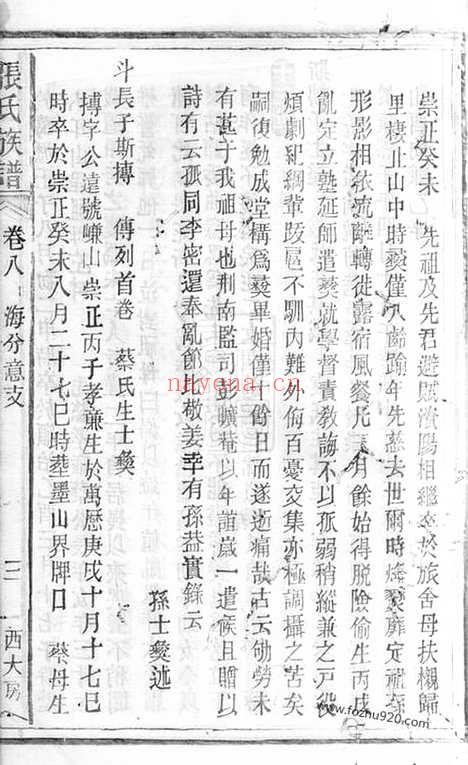 崇正癸未 先祖及先君避賊澬陽相繼卒於旅舍母扶櫬歸
里棲止山中時䕫僅八齡踰年先慈去世爾時烽靡定禮
形影相依流離轉徙露宿風餐月餘始得脫險偷生丙戌
亂定立塾延師遣䕫就學督責敎誨不以孤弱稍縱兼之戸役
煩劇紀綱輩跋扈不馴內難外侮百憂交集亦極調攝之苦矣
嗣復勉成堂搆爲䕫畢婚僅十餘日而遂逝痛哉古云劬勞未
有甚于我祖母也荆南監司彭曠菴以年誼歲一遣候且贈以
詩有云孤同李密還奉亂節比敬姜幸有孫益實錄云
孫士䕫述
斗長子斯摶 傳列首卷 蔡氏生士䕫
摶字公遠號嵰山崇正丙子孝亷生於萬曆庚戌十月十七巳
時卒於崇正癸未八月二十七巳時葬墨山界牌口 蔡母生
張氏族譜 卷八 海分意支 三 西大房
nayena.cc
www.fozhu920.com